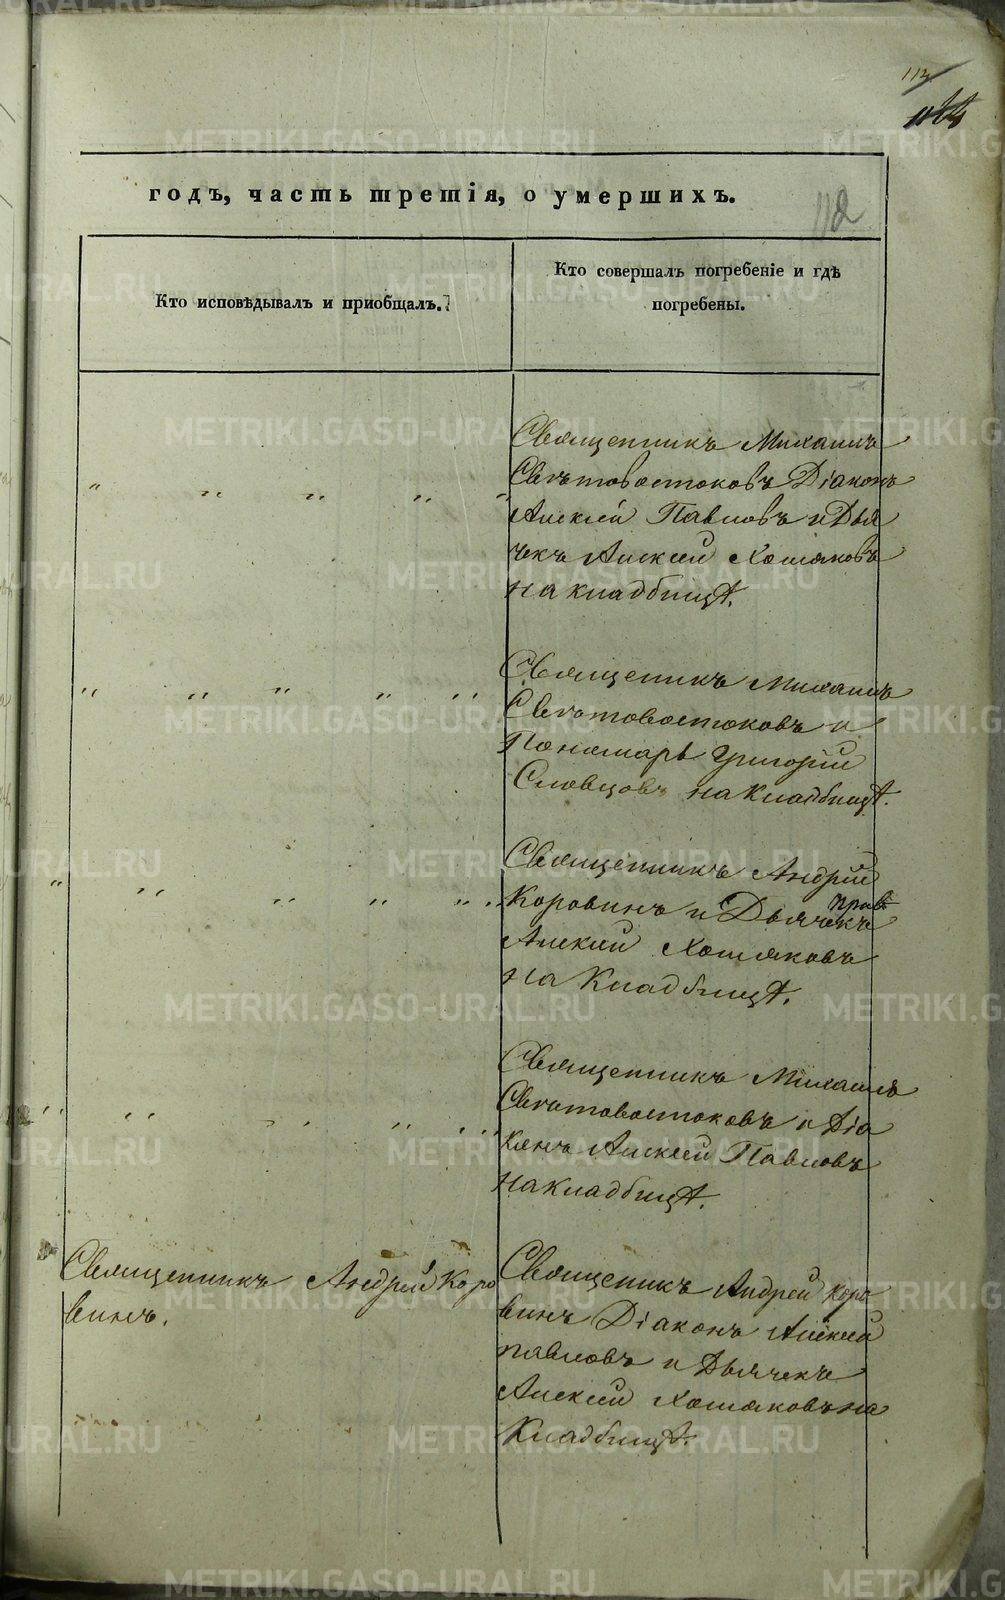 113
годъ, часть третія, о умершихъ.
112
Кто исповѣдывалъ и приобщалъ.
Кто совершалъ погребеніе и гдѣ
погребены.
Священникъ Михаилъ
Святовостоковъ Діаконъ
Алексѣй Павловъ и Дья
чекъ Алексѣй Хомяковъ
на кладбищѣ.
" " " " "
Священикъ Михаилъ
Святовостоковъ и
Пономарь Григорій
Словцовъ на Кладбищѣ.
" " " " "
Священникъ Андрей
Коровинъ и Дьячекъ
Алексѣй Хомяковъ
на Кладбищѣ.
" " " " "
Священникъ Михаилъ
Святовостоковъ и Діа
конъ Алексѣй Павловъ
на кладбищѣ.
" " " " "
Священникъ Андрей Коро
винъ.
Священикъ Андрей Коро
винъ Діаконъ Алексѣй
павловъ и Дьячекъ
Алексѣй Хомяковъ на
Кладбищѣ.
METRIKI.GASO-URAL.RU